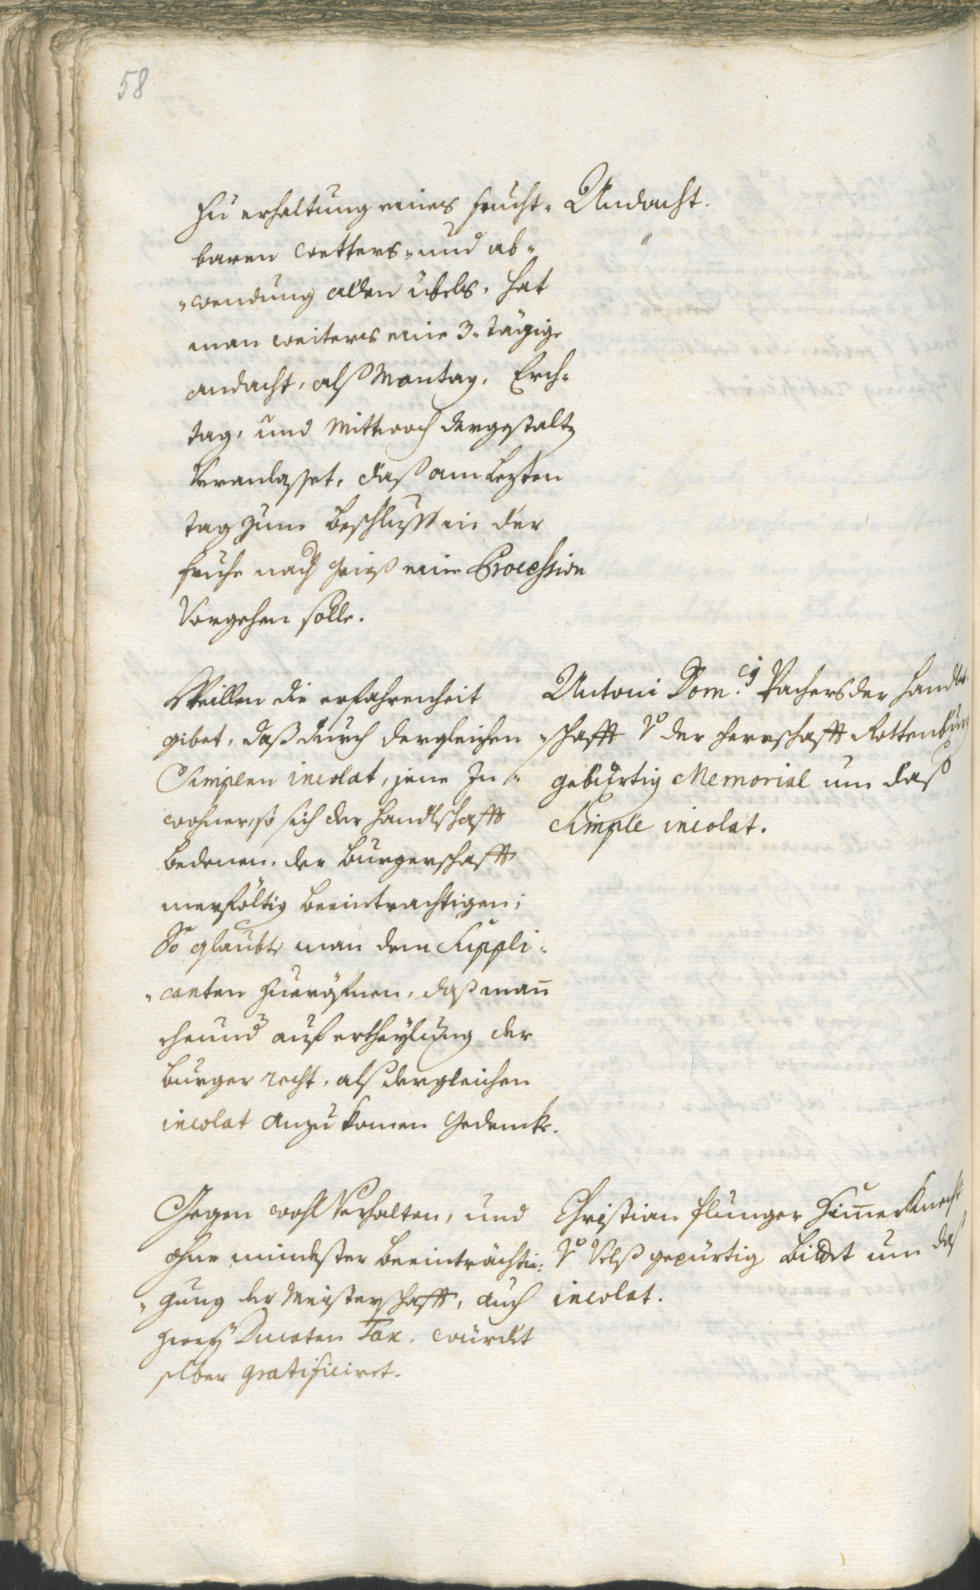 58
Zu erhaltung eines frucht-
baren wetters, und ab-
wendung allen übels, hat
man weiters eine 3. tägige
andacht, alß Montag, Erch-
tag, und Mittwoch dergestalt
Veranlasset, daß am lezten
tag zum beschluss in der
fruhe nach Grieß eine Procession
Vorgehen solle.
Andacht.
Weillen die erfahrenheit
gibet, daß durch dergleichen
Simplen incolat, jene In-
wohner, so sich der handlschafft
bedienen, der burgerschafft
merfältig beeintrachtigen;
So glaubt man dem Suppli-
canten zueröfnen, daß man
eheund auf ertheylung der
burger recht, als dergleichen
incolat anzukomen gedenke.
Antoni Dom.ci Pachers der handl-
schafft Vo der herrschafft Rottenburg
gebürtig Memorial um daß
Simple incolat.
Gegen wohl Verhalten, und
ohne mindester beeinträchti-
gung der Meisterschafft, auch
zwey Ducaten Tax, würdet
selber gratificiret.
Christian Plunger Zimmer Knecht
Vo Velß gepürtig bittet um daß
incolat.